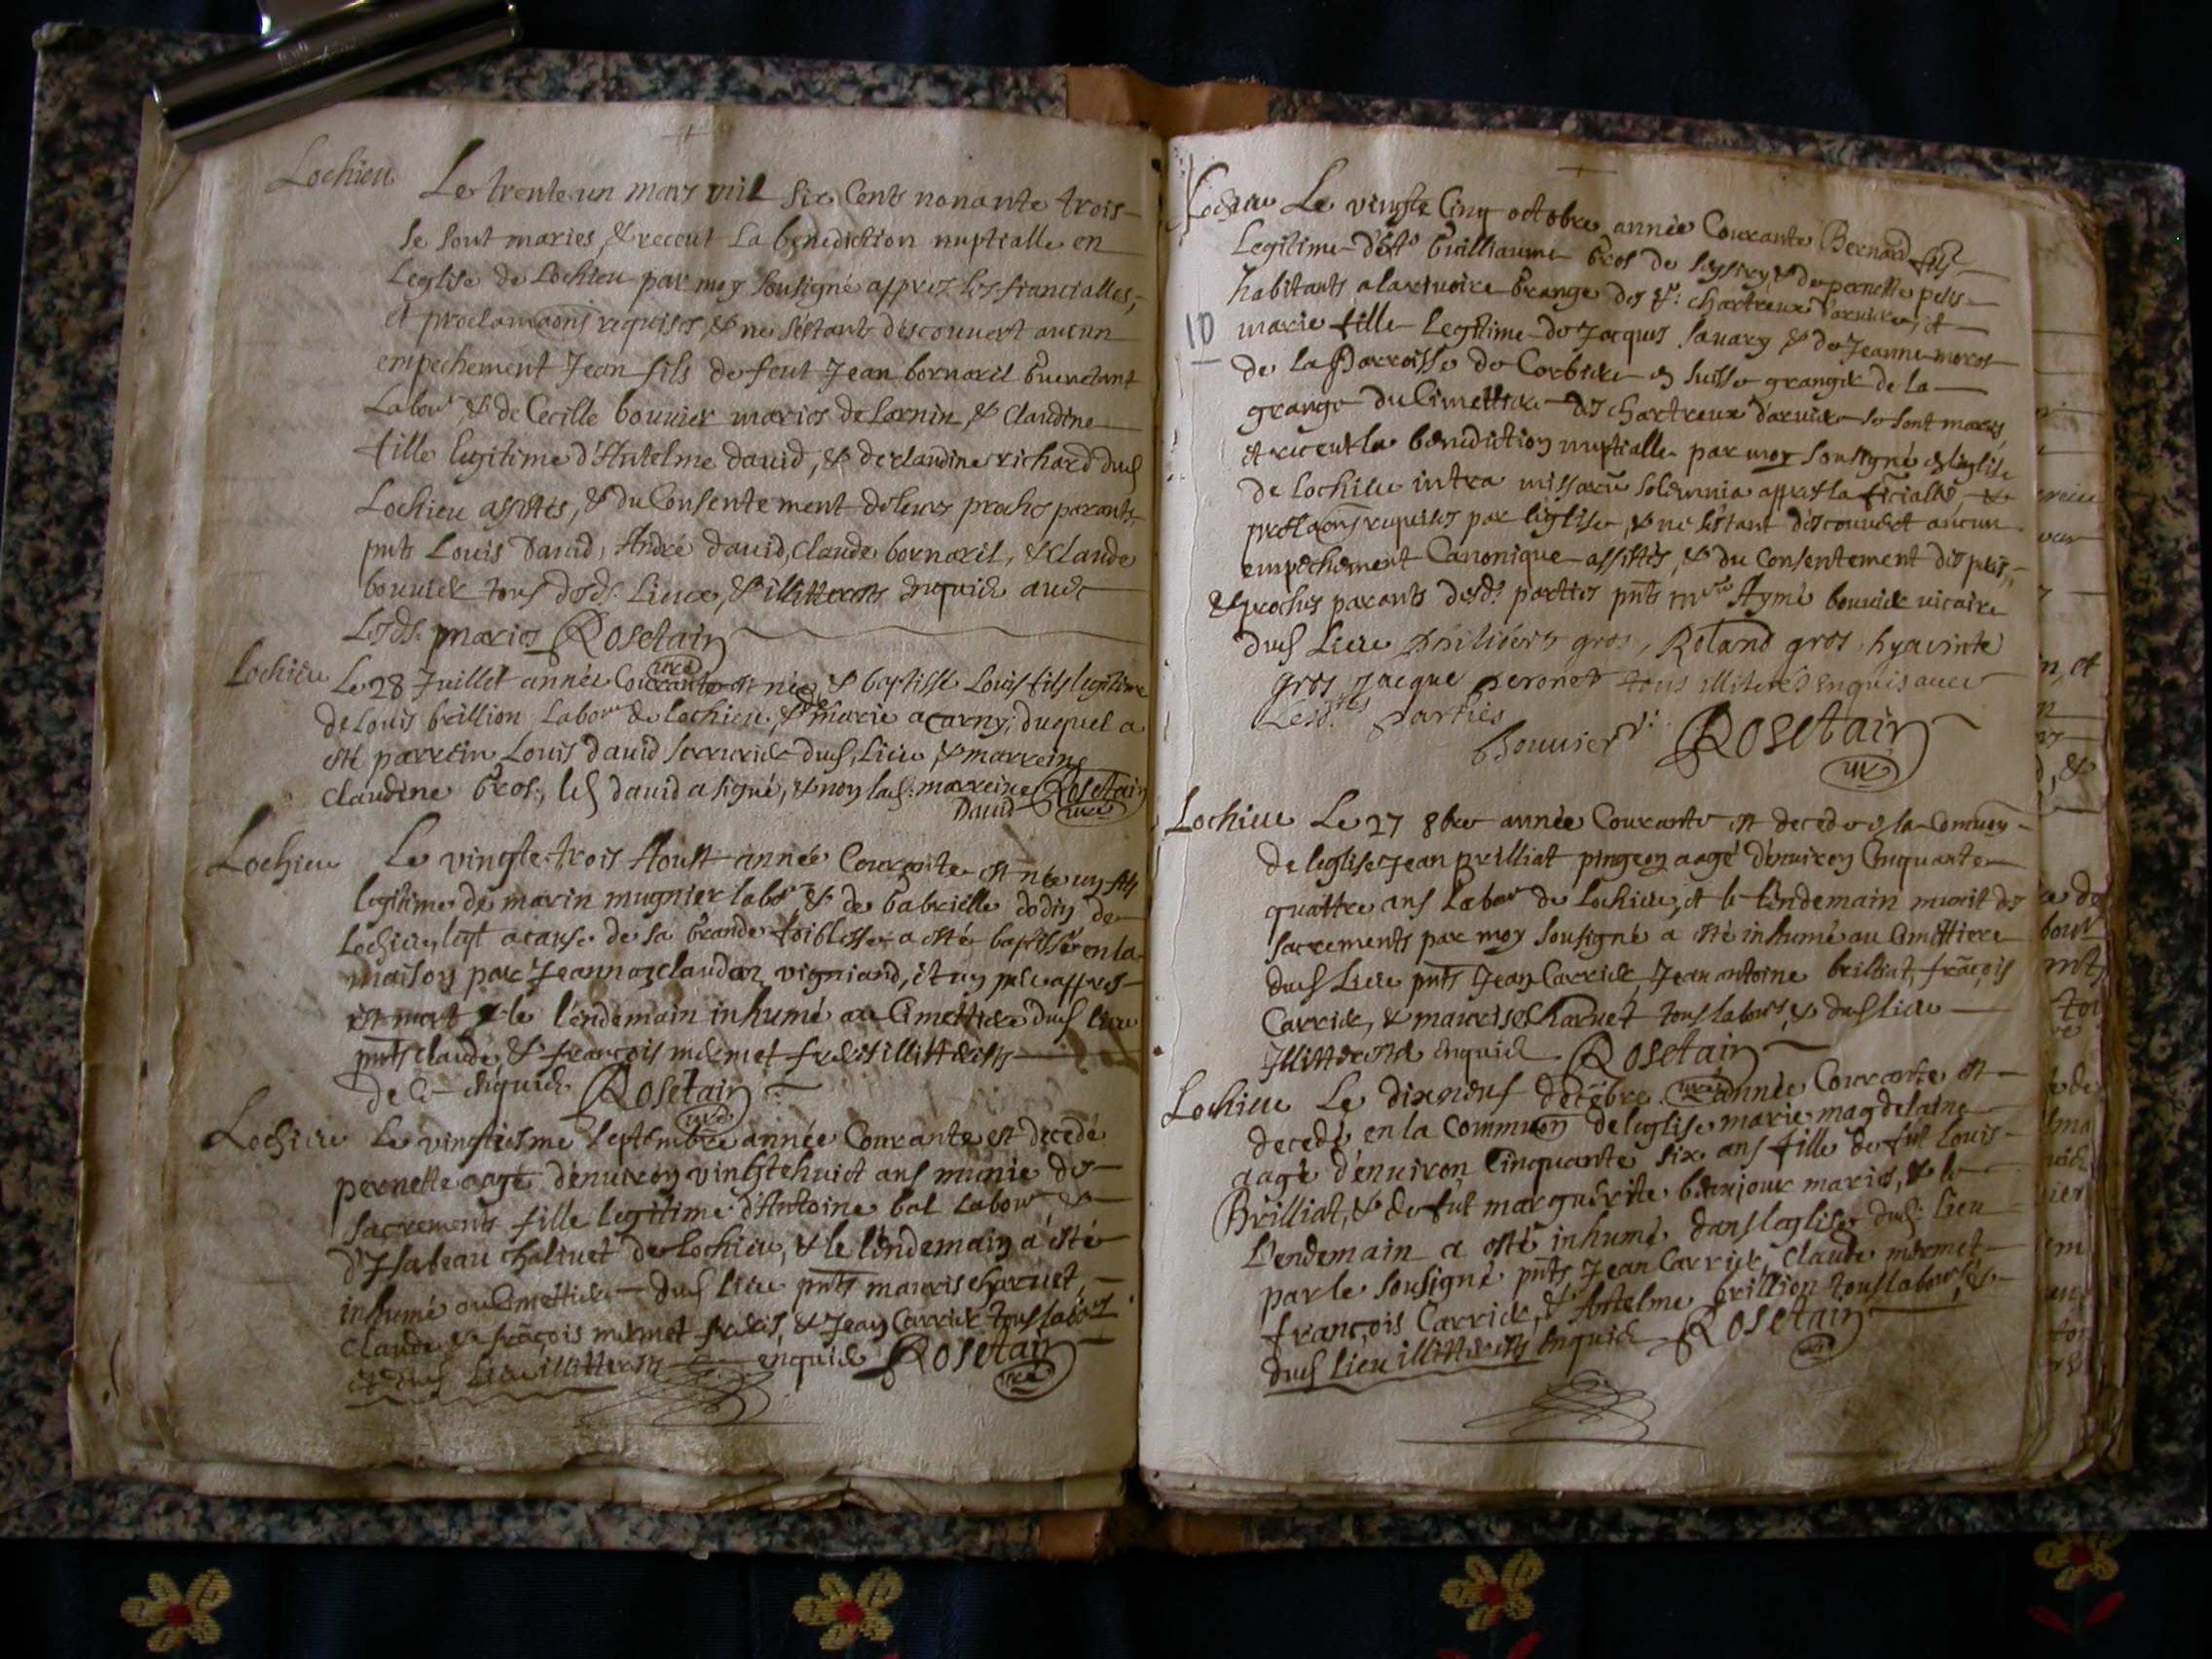 Lochieu Le trente un mars mil six Cents nonante trois
se sont maries, & receut La benediction nuptialle en
Leglise de Lochieu par moy sousigné appres les fiancialles,
et proclamaons requises, & ne s'estants descouvert aucun
empechement Jean fils de feut Jean bornaril
Labour & de Cecille bouvier maries de Lornin, & Claudine
fille legitime d'Antelme david, & de claudine richard dud
Lochieu assistes, & du Consentement de leurs proches parants,
pnts Louis david, André david, Claude bornaril, & Claude
bouvier tous desds. Lieux, & illitteres enquis avec
Lesds. maries Rosetain
curé
Lochieu Le 28 Juillet année Courante est née, & baptissé Louis fils legitime
de Louis brillion Labour de Lochieu, & de marie acarny; duquel a
esté parrein Louis david serrurier dud, Lieu, & marreine
Claudine Gros, led david a signé, & non lad: marreine Rosetain
David curé
Lochieu Le vingte trois Aoust année Courante est née un fils
legitime de marin mugnier labor & de Gabrielle dodin de
Lochieu leqt a cause de sa Grande foiblesse a esté baptissé en la
maison par Jeanna claudaz vigniand, et un peu appres
est mort & le l'endemain inhumé au Cimettiere dud lieu
pnts claude, & françois mermet freres illitteres
de ce enquis Rosetain
curé
Lochieu Le vingtiesme septembre année Courante est decedé
pernette aagé d'enuiron vingtehuict ans munie des
sacrements fille legitime d'Antoine bal Labour &
d'Isabeau chaliuet de Lochieu, & le l'endemain a esté
inhumé au Cimettiere dud lieu pnts mauris charuet,
Claude, & frãçois mermet freres, & Jean Carrier tous labors
et dud Lieu illitteres enquis Rosetain
curé
Lochieu Le vingte Cinq octobre année Courante Bernard fils
Legitime d'Est. Guilliaume Gros de seyssiry, & de pernette pelis
habitants a la riuoire Grange des Rs: chartreux d'aruiere, et
10
marie fille Legitime de Jacques sauary & de Jeanne moros
de la Parroisse de Corbiere en Suisse granger de la
grange du Cimettiere des chartreux d'aruiere se sont maries,
et receut la benediction nuptialle par moy sousigné en leglise
de Lochieu intra missarũ solemnia appres la ficialles, &
proclaons requises par leglise, & ne s'estant descouvert aucun
empechement Canonique assistés, & du Consentement des peres,
& proches parants desds. parties pnts mre Aymé bouvier vicaire
dud Lieu philibert gros, Roland gros hyacinte
gros Jacque peronet tous illiteres enquis avec
Lesdtes parties
bouvier v: Rosetain
curé
Lochieu Le 27 8bre année Courante est decede en la Communõ
de leglise Jean prilliat pingeon aagé d'enuiron Cinquante
quattre ans Labour de Lochieu, et le l'endemain munit des
sacrements par moy sousigné a esté inhumé au Cimettiere
dud Lieu pnts Jean Carrier, Jean antoine brilliat, frãçois
Carrier, & maurise charuet tous labours, & dud lieu
Illitteres enquis Rosetain
curé
Lochieu Le dixneuf decẽbre année Courante est
decedé en la Commuon de leglise marie magdelaine
aagé d'enuiron Cinquante six ans fille de fut Louis
Brilliat, & de fut marguérite beaujour maries, & le
L'endemain a esté inhumé dans leglise dud: Lieu
par le sousigné pnts Jean Carrier, Claude mermet
françois Carrier, & Antelme brillion tous labours, &
dud Lieu illitteres enquis Rosetain
curé